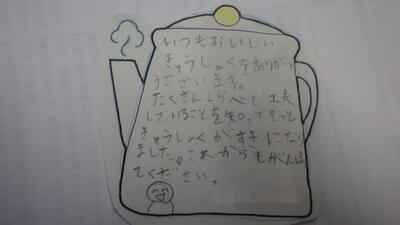 いつもおいしい
きゅうしょくをありがと
うございます。
たくさんしらべて工夫
していることを知ってもっと
きゅうしょくがすきにな
りました。これからもがんばっ
てください。